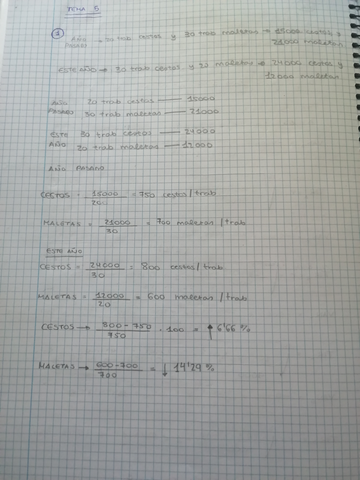 TEMA 5
① AÑO PASADO → 20 trab cestos y 30 trab maletas → 15000 cestos y
21000 maletas
ESTE AÑO → 30 trab cestos y 20 maletas → 24000 cestos y
12000 maletas
AÑO 20 trab cestos —— 15000
PASADO 30 trab maletas —— 21000
ESTE 30 trab cestos —— 24000
AÑO 20 trab maletas —— 12000
AÑO PASADO
CESTOS = 15000/20 = 750 cestos/trab
MALETAS = 21000/30 = 700 maletas/trab
ESTE AÑO
CESTOS = 24000/30 = 800 cestos/trab
MALETAS = 12000/20 = 600 maletas/trab
CESTOS → 800-750/750 · 100 = ↑ 6'66 %
MALETAS → 600-700/700 = ↓ 14'29 %